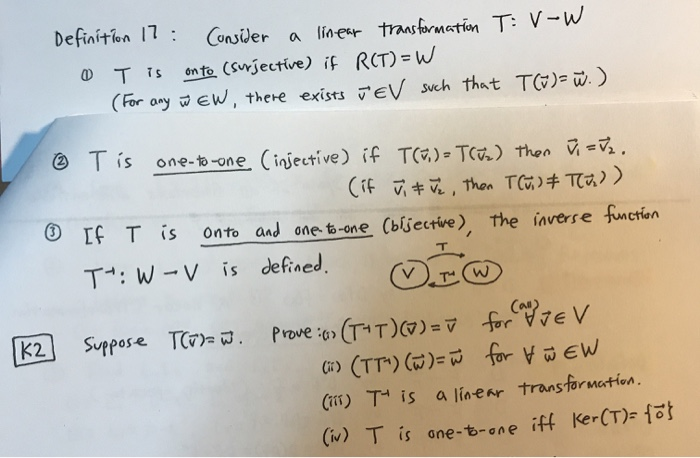 Definition 17 : Consider a linear transformation T: V→W
① T is onto (surjective) if R(T)=W
(For any w⃗ ∈W, there exists v⃗∈V such that T(v⃗)=w⃗.)
② T is one-to-one (injective) if T(v⃗₁)=T(v⃗₂) then v⃗₁=v⃗₂.
(if v⃗₁≠v⃗₂, then T(v⃗₁)≠T(v⃗₂))
③ If T is onto and one-to-one (bijective), the inverse function
T⁻¹: W→V is defined.
T
V T⁻¹ W
K2 Suppose T(v⃗)=w⃗. Prove :(i) (T⁻¹T)(v⃗)=v⃗ for ∀(all) v⃗∈V
(ii) (TT⁻¹)(w⃗)=w⃗ for ∀ w⃗∈W
(iii) T⁻¹ is a linear transformation.
(iv) T is one-to-one iff Ker(T)={0⃗}